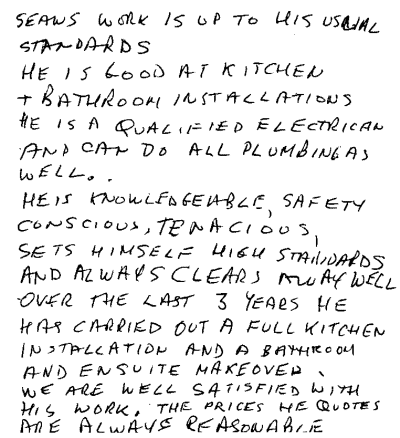 SEANS WORK IS UP TO HIS USUAL
STANDARDS
HE IS GOOD AT KITCHEN
+ BATHROOM INSTALLATIONS
HE IS A QUALIFIED ELECTRICAN
AND CAN DO ALL PLUMBING AS
WELL..
HE IS KNOWLEDGEABLE, SAFETY
CONSCIOUS, TENACIOUS,
SETS HIMSELF HIGH STANDARDS
AND ALWAYS CLEARS AWAY WELL
OVER THE LAST 3 YEARS HE
HAS CARRIED OUT A FULL KITCHEN
INSTALLATION AND A BATHROOM
AND ENSUITE MAKEOVER.
WE ARE WELL SATISFIED WITH
HIS WORK. THE PRICES HE QUOTES
ARE ALWAYS REASONABLE